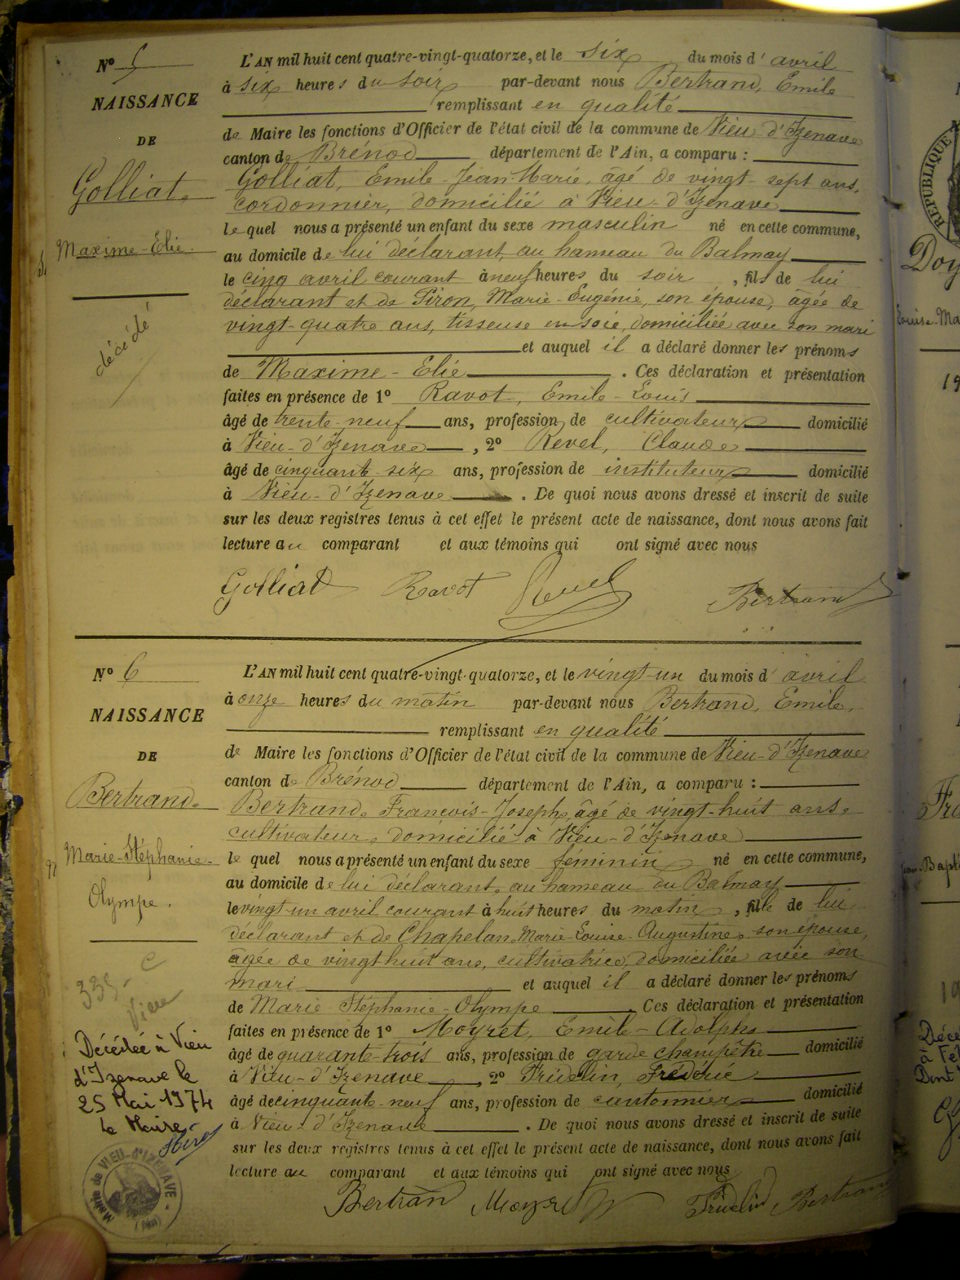 N° 5
NAISSANCE
DE
Golliat
Maxime-Elie
décédé
L'AN mil huit cent quatre-vingt-quatorze, et le six du mois d'avril
à six heures du soir par-devant nous Bertrand, Emile
remplissant en qualité
de Maire les fonctions d'Officier de l'état civil de la commune de Vieu-d'Izenave
canton de Brénod département de l'Ain, a comparu :
Golliat, Emile-Jean-Marie, âgé de vingt-sept ans,
cordonnier, domicilié à Vieu-d'Izenave
lequel nous a présenté un enfant du sexe masculin né en cette commune,
au domicile de lui déclarant au hameau du Balmay
le cinq avril courant à neuf heures du soir, fils de lui
déclarant et de Piron, Marie-Eugénie, son épouse, âgée de
vingt-quatre ans, tisseuse en soie, domiciliée avec son mari
et auquel il a déclaré donner les prénoms
de Maxime-Elie. Ces déclaration et présentation
faites en présence de 1° Ravot, Emile-Louis
âgé de trente-neuf ans, profession de cultivateur domicilié
à Vieu-d'Izenave, 2° Revel, Claude
âgé de cinquante-six ans, profession de instituteur domicilié
à Vieu-d'Izenave. De quoi nous avons dressé et inscrit de suite
sur les deux registres tenus à cet effet le présent acte de naissance, dont nous avons fait
lecture au comparant et aux témoins qui ont signé avec nous
Golliat Ravot Revel Bertrand
N° 6
NAISSANCE
DE
Bertrand
Marie-Stéphanie-
Olympe.
335-C
Vieu
Décédée à Vieu
d'Izenave le
25 Mai 1974
le Maire
Mairie de VIEU-D'IZENAVE (Ain)
L'AN mil huit cent quatre-vingt-quatorze, et le vingt-un du mois d'avril
à onze heures du matin par-devant nous Bertrand, Emile,
remplissant en qualité
de Maire les fonctions d'Officier de l'état civil de la commune de Vieu-d'Izenave
canton de Brénod département de l'Ain, a comparu :
Bertrand, François-Joseph, âgé de vingt-huit ans,
cultivateur, domicilié à Vieu-d'Izenave
lequel nous a présenté un enfant du sexe féminin né en cette commune,
au domicile de lui déclarant, au hameau du Balmay
le vingt-un avril courant à huit heures du matin, fille de lui
déclarant et de Chapelan, Marie-Louise-Augustine, son épouse,
âgée de vingt huit ans, cultivatrice, domiciliée avec son
mari et auquel il a déclaré donner les prénoms
de Marie Stéphanie-Olympe Ces déclaration et présentation
faites en présence de 1° Moyret, Emile-Adolphe
âgé de quarante-trois ans, profession de garde champêtre domicilié
à Vieu-d'Izenave, 2° Frudelin, Frédéric
âgé de cinquante-neuf ans, profession de cantonnier domicilié
à Vieu-d'Izenave. De quoi nous avons dressé et inscrit de suite
sur les deux registres tenus à cet effet le présent acte de naissance, dont nous avons fait
lecture au comparant et aux témoins qui ont signé avec nous
Bertran Moyret Frudelin Bertrand